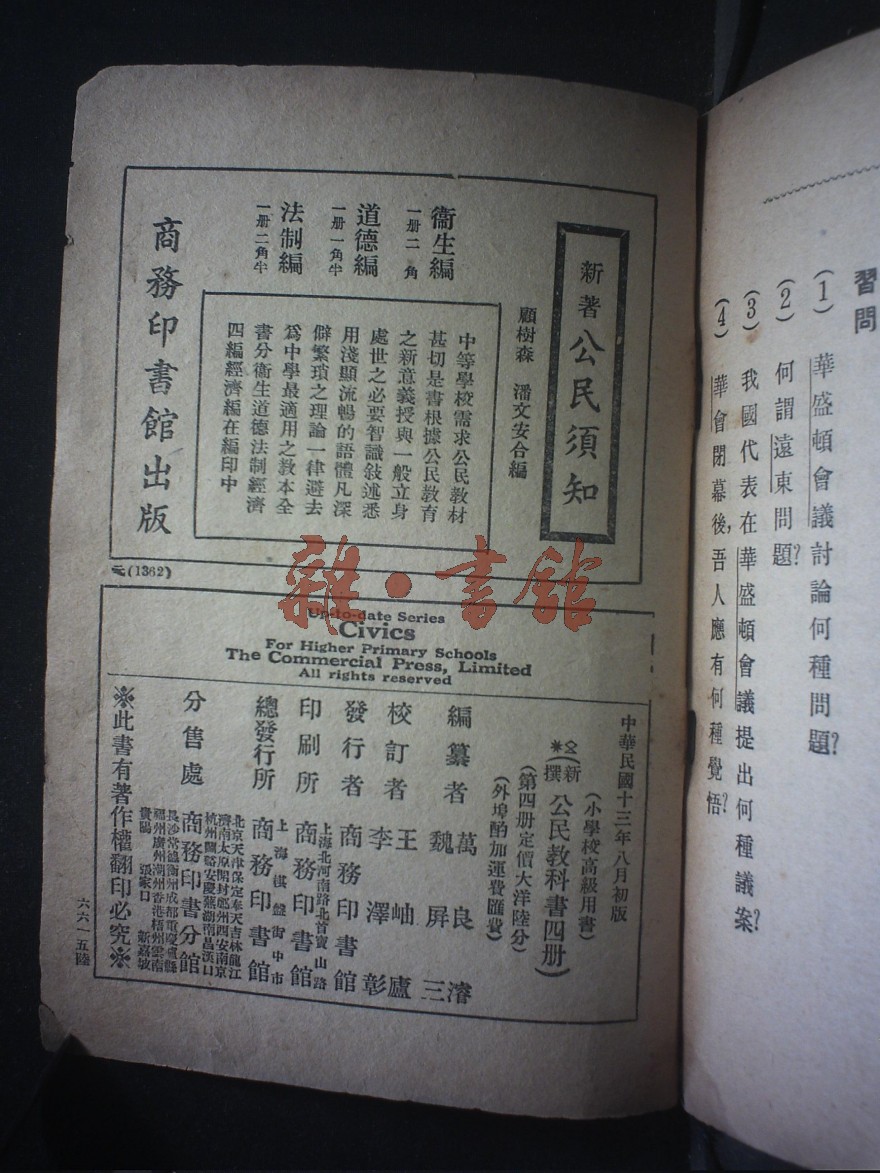 習問
(1) 華盛頓會議討論何種問題?
(2) 何謂遠東問題?
(3) 我國代表在華盛頓會議提出何種議案?
(4) 華會閉幕後,吾人應有何種覺悟?
新著公民須知
顧樹森 潘文安合編
衞生編
一册二角
道德編
一册一角半
法制編
一册二角半
中等學校需求公民教材
甚切是書根據公民教育
之新意義授與一般立身
處世之必要智識敍述悉
用淺顯流暢的語體凡深
僻繁瑣之理論一律避去
爲中學最適用之教本全
書分衞生道德法制經濟
四編經濟編在編印中
商務印書館出版
(1362)
雜·書館
Up-to-date Series
Civics
For Higher Primary Schools
The Commercial Press, Limited
All rights reserved
中華民國十三年八月初版
(小學校高級用書)
(新撰 公民教科書四册)
(第四册定價大洋陸分)
(外埠酌加運費匯費)
編纂者 萬良濬 魏屏三
校訂者 王岫廬 李澤彰
發行者 商務印書館
上海北河南路北首寶山路
印刷所 商務印書館
上海棋盤街中市
總發行所 商務印書館
北京天津保定奉天吉林龍江
濟南太原開封鄭州西安南京
杭州蘭谿安慶蕪湖南昌漢口
分售處 商務印書分館
長沙常德衡州成都重慶瀘縣
福州廣州潮州香港梧州雲南
貴陽 張家口 新嘉坡
※此書有著作權翻印必究※
六六一五陸